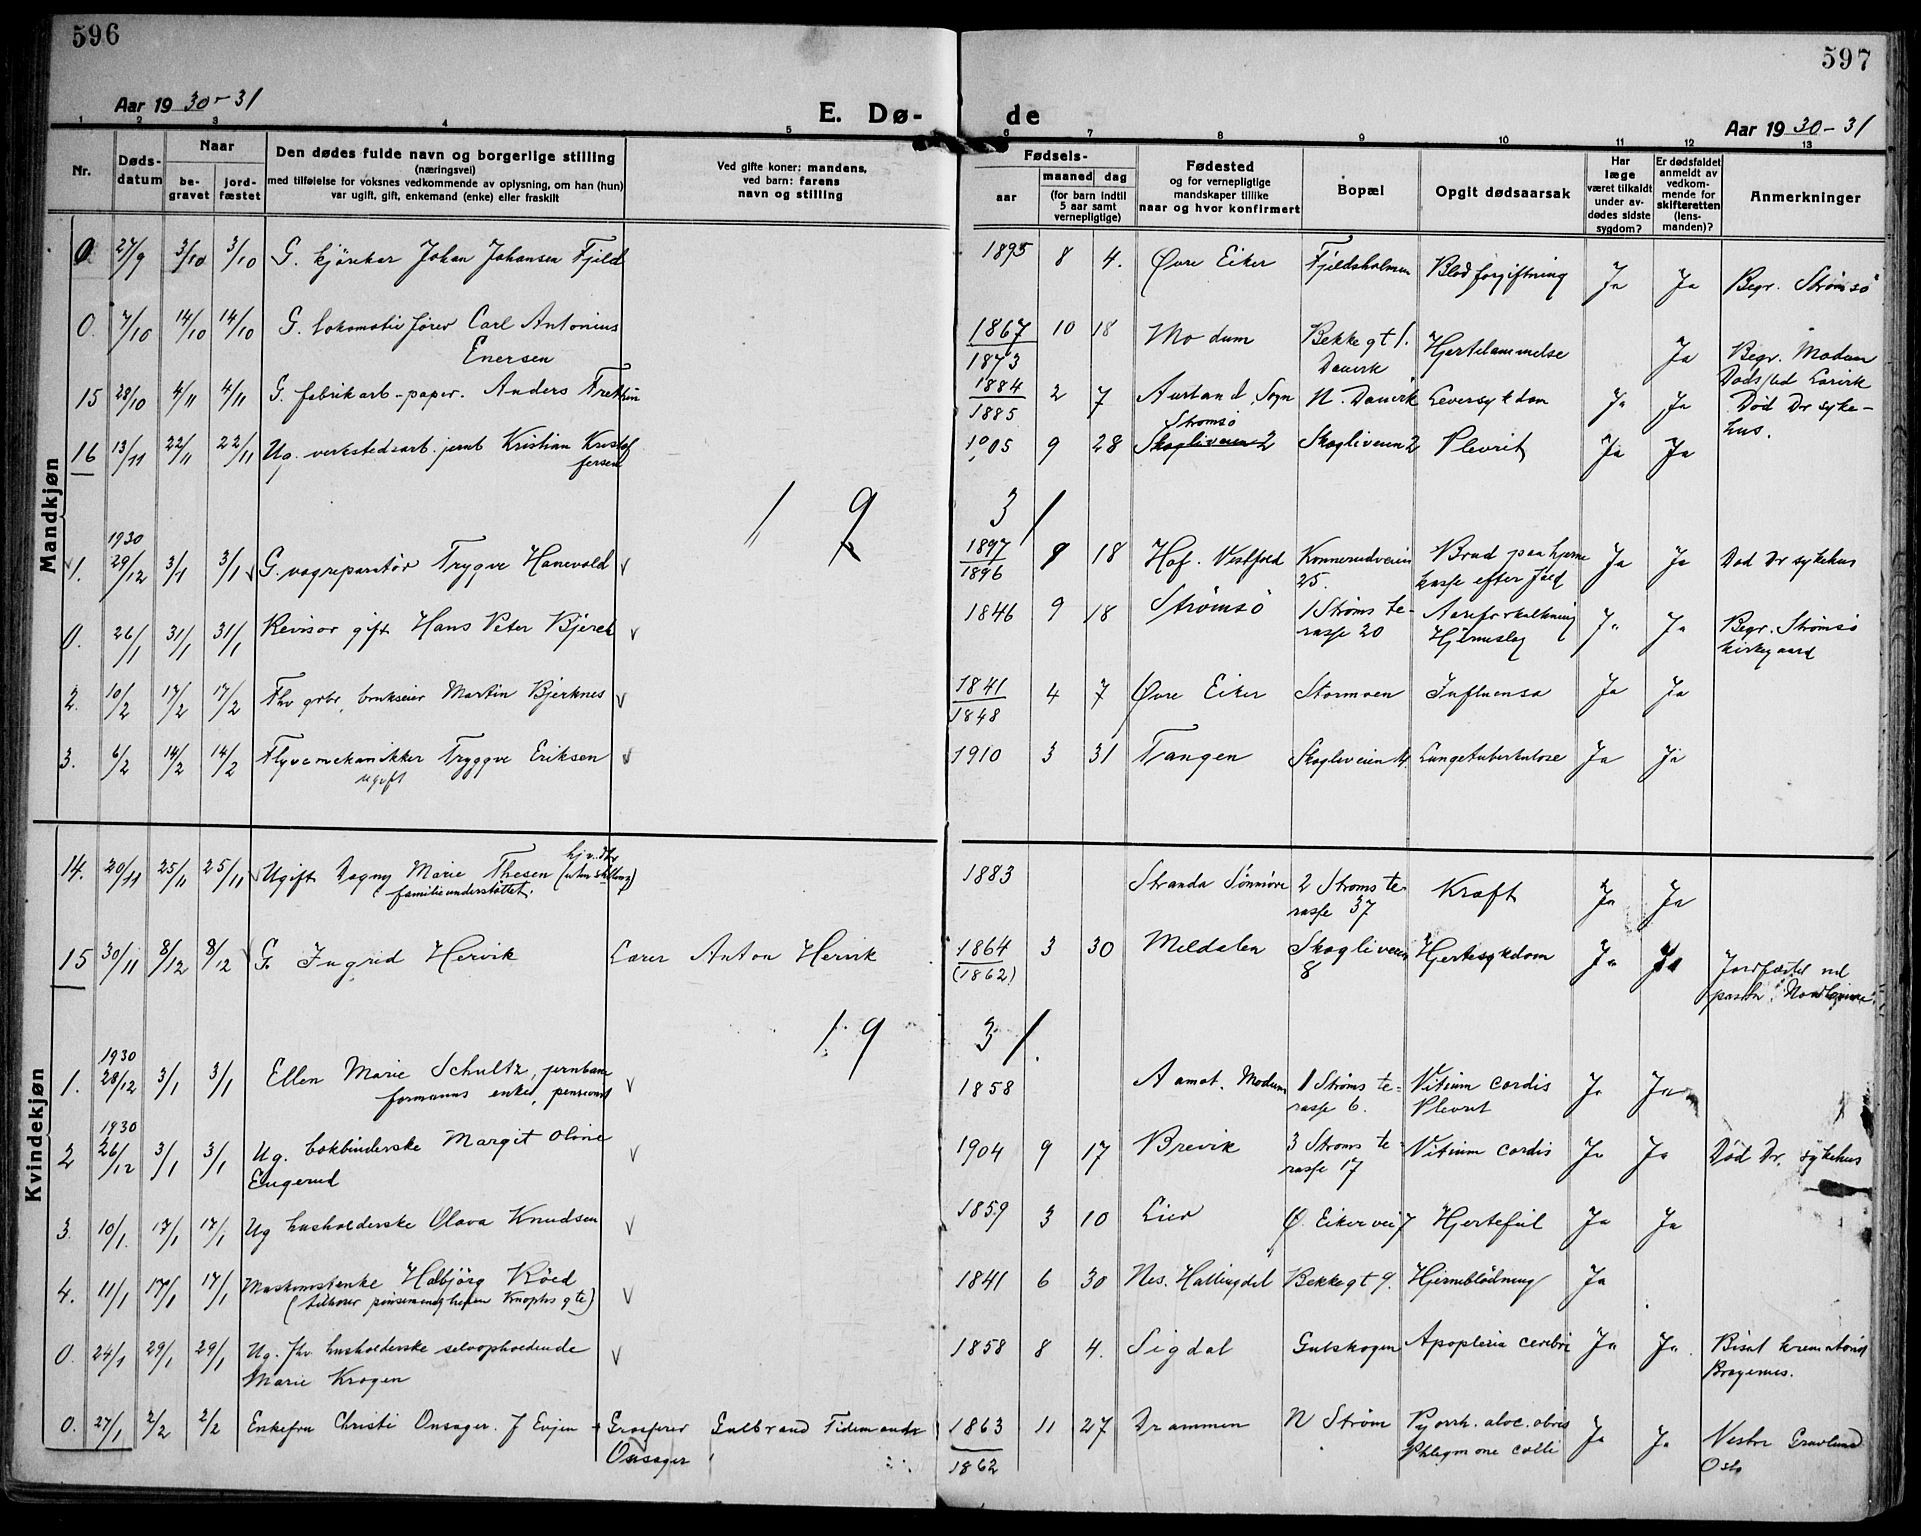 596
597
Aar 19 30-31
E. Dø-
de
Aar 19 30-31
1 2 3 4 5 6 7 8 9 10 11 12 13
Nr.
Døds-
datum
Naar
be-
gravet
jord-
fæstet
Den dødes fulde navn og borgerlige stilling
(næringsvei)
med tilføielse for voksnes vedkommende av oplysning, om han (hun)
var ugift, gift, enkemand (enke) eller fraskilt
Ved gifte koner: mandens,
ved barn: farens
navn og stilling
Fødsels-
aar
maaned dag
(for barn indtil
5 aar samt
vernepligtige)
Fødested
og for vernepligtige
mandskaper tillike
naar og hvor konfirmert
Bopæl
Opgit dødsaarsak
Har
læge
været tilkaldt
under av-
dødes sidste
sygdom?
Er dødsfaldet
anmeldt av
vedkom-
mende for
skifteretten
(lens-
manden)?
Anmerkninger
Mandkjøn
0 27/9 3/10 3/10 G. kjørekar Johan Johansen Fjeld 1895 8 4. Øvre Eiker Fjeldsholmen Blodforgiftning Ja Ja Begr. Strømsø
0. 7/10 14/10 14/10 G. lokomotivfører Carl Antonius 1867 10 18 Modum Bekkegt 1. Hjertelammelse Ja Begr. Modum
Enersen 1873 Danvik Dødsted
15 28/10 4/11 4/11 G. fabrikarb-papir. Anders 1884 2 7 Aurland, Sogn N. Danvik Leversykdom Ja Ja Død Dr syke-
1885 hus.
Strømsø
16 13/11 22/11 22/11 Ug. verkstedsarb. jernb Kristian Kristof 1905 9 28 Skogliveien 2 Skogliveien 2 Plevrit Ja Ja
fersen
1 9 3 1
1930
1. 29/12 3/1 3/1 G. vogreparatør Trygve Hanevold v 1897 8 18 Hof. Vestfold Konnerudveien Brud paa hjerne Ja Ja Død Dr sykehus
1896 25. kasse efter fald
0. 26/1 31/1 31/1 Revisor gift Hans Peter Bjerch v 1846 9 18 Strømsø 1 Strøms te- Aareforkalkning Ja Ja Begr. Strømsø
rasse 20 Hjerneslag kirkegaard
2. 10/2 17/2 17/2 Fhv grbr, brukseier Martin Bjerknes v 1841 4 7 Øvre Eiker Stormoen Influensa Ja Ja
1848
3. 6/2 14/2 14/2 Flyvemekanikker Tryggve Eriksen v 1910 3 31 Tangen Skogliveien Lungetuberkulose Ja Ja
ugift
Kvindekjøn
14. 20/11 25/11 25/11 Ugift Dagny Marie Thesen 1883 Stranda Sønmøre 2 Strøms te- Kræft Ja Ja
familieunderstøttet. rasse 37
15 30/11 8/12 8/12 G. Ingrid Hervik Lærer Anton Hervik 1864 3 30 Meldalen Skogliveien Hjertesykdom Ja Ja Jordfæstet ved
(1862) 8 pastor
1 9 3 1.
1930
1. 28/12 3/1 3/1 Ellen Marie Schultz, jernbane v 1858 Aamot. Modum 1 Strøms te- Vitium cordis Ja Ja
formanns enke, pensionist rasse 6. Plevrit
1930
2 26/12 3/1 3/1 Ug. bokbinderske Margit Oline v 1904 9 17 Brevik 3 Strøms te- Vitium cordis Ja Ja Død Dr. sykehus
Engerud rasse 17
3. 10/1. 17/1 17/1 Ug husholderske Olava Knudsen v 1859 3 10 Lier Ø. Eikervei 7 Hjertefeil Ja Ja
4. 11/1 17/1 17/1 Maskinistenke Halbjörg Röed v 1841 6 30 Nes. Hallingdal Bekkegt 9. Hjerneblödning Ja
(tilhører pinsemenigheten Knophs gte)
0. 24/1 29/1 29/1 Ug. fhv. husholderske selvopholdende v 1858 8 4. Sigdal Gulskogen Apoplexia cerebri Ja Ja. Bisat krematoriet
Marie Krogen Bragernes.
0. 27/1 2/2 2/2 Enkefru Christi Onsager. f Evjen Grosserer Gulbrand Tidemand 1863 11 27 Drammen N Strøm Pyorrh. alve. Ja Ja Vestre Gravlund
Onsager 1862 Phlegmone colli Oslo